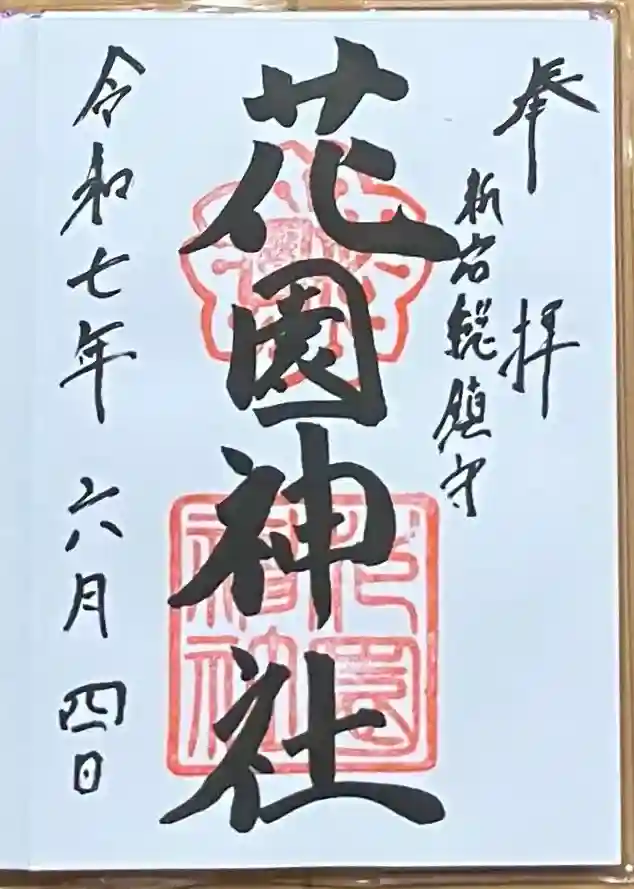 奉拝
新宿総鎮守
花園神社
花園神社
令和七年六月四日